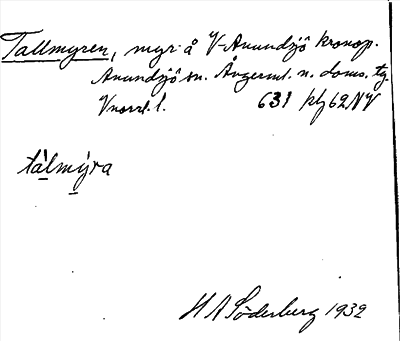 Tallmyren, myr å V-Anundsjö kronop.
Anundsjö sn. Ångerml. n. doms. tg.
Vnorrl. l. 631 klf 62NV
tàlmýra
H A Söderberg 1932